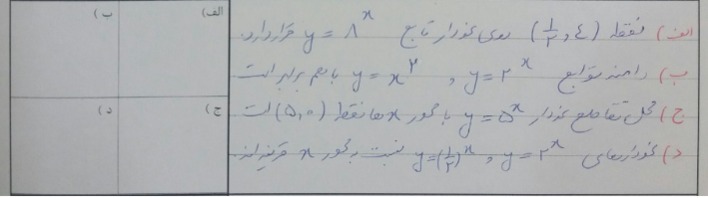 الف) نقطه (1/2 , 4) روی نمودار تابع y = 8^x قرار دارد.
ب) دامنه توابع y = 2^x , y = x^2 با هم برابر است
ج) محل تقاطع نمودار y = 5^x با محور x ها نقطه (5,0) است
د) نمودارهای y = 2^x , y = (1/2)^x نسبت به محور x قرینه اند.
الف) ب)
ج) د)